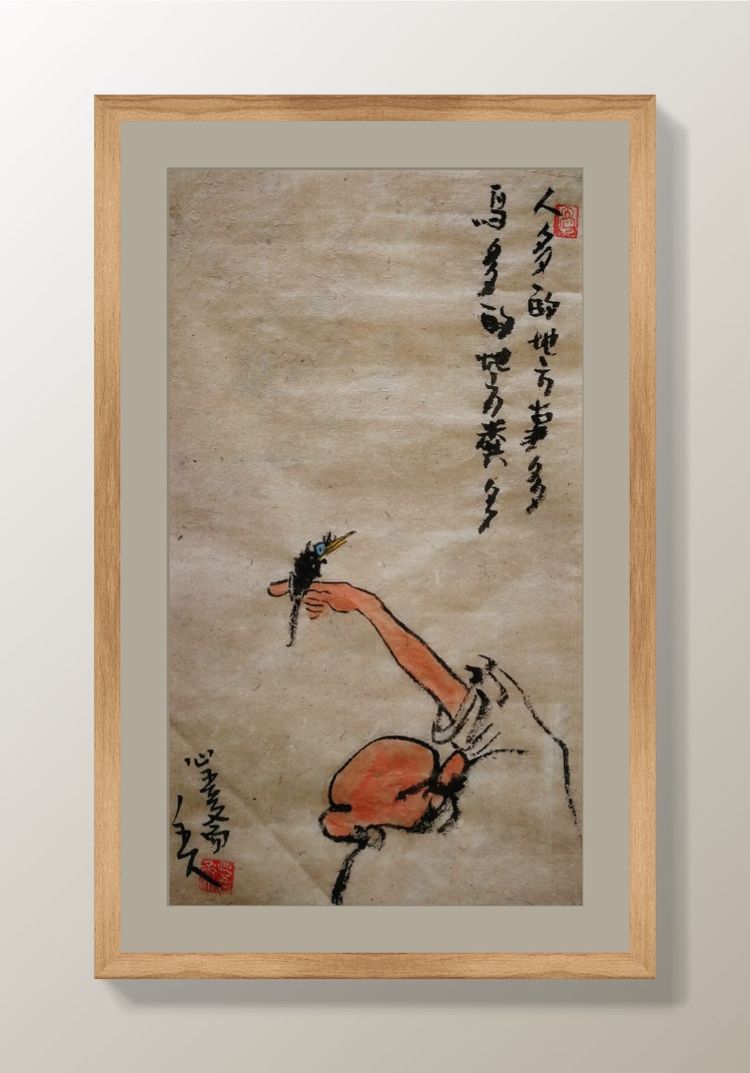 人多的地方事多
鸟多的地方粪多
心